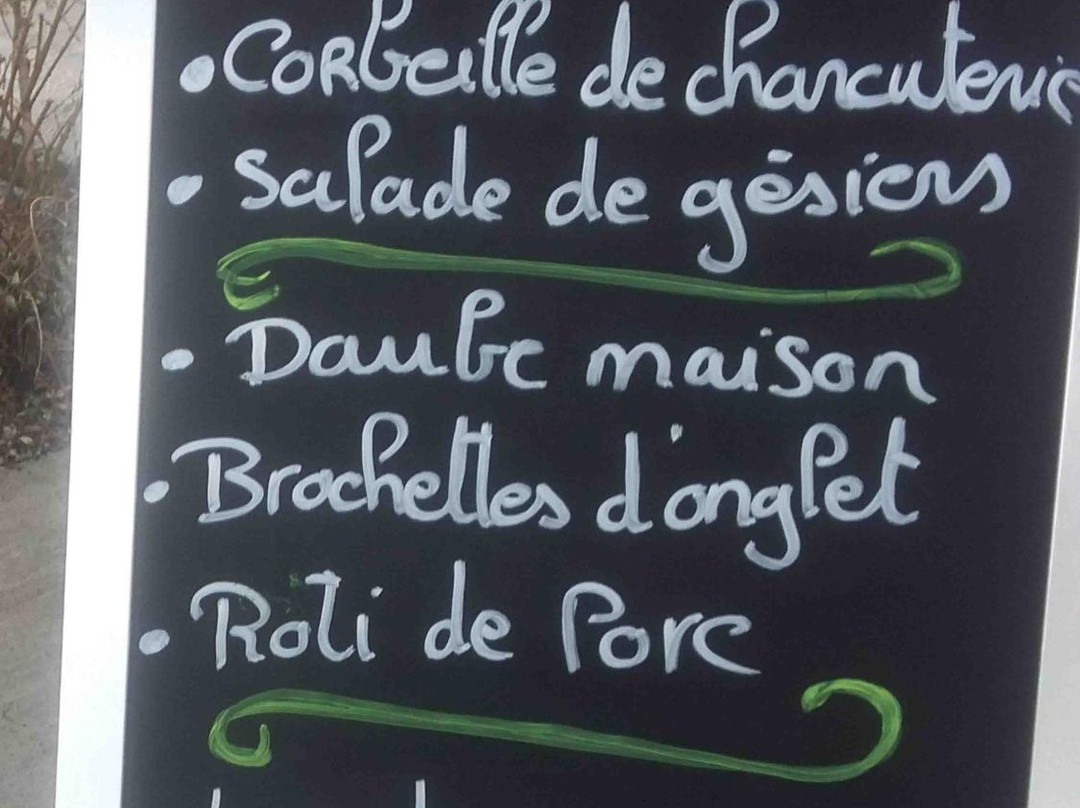 • Corbeille de charcuterie
• Salade de gésiers
• Daube maison
• Brochettes d'onglet
• Roti de Porc